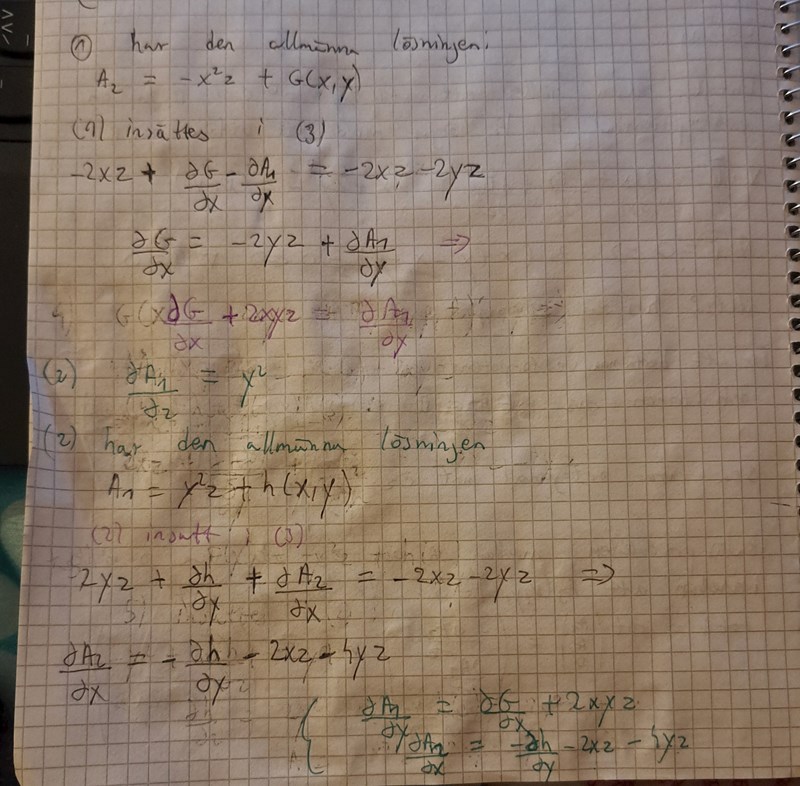 ① har den allmänna lösningen:
A₂ = -x²z + G(x,y)
(1) insättes i (3)
-2xz + ∂G/∂x - ∂A₁/∂x = -2xz - 2yz
∂G/∂x = -2yz + ∂A₁/∂y ⇒
G(x ∂G/∂x + 2xyz = ∂A₁/∂y ⇒
(2) ∂A₁/∂z = y²
(2) har den allmänna lösningen
A₁ = y²z + h(x,y)
(2) insatt i (3)
2yz + ∂h/∂y + ∂A₂/∂x = -2xz - 2yz ⇒
∂A₂/∂x = - ∂h/∂y - 2xz - 4yz
{ ∂A₁/∂y = ∂G/∂x + 2xyz
∂A₂/∂x = -∂h/∂y - 2xz - 4yz